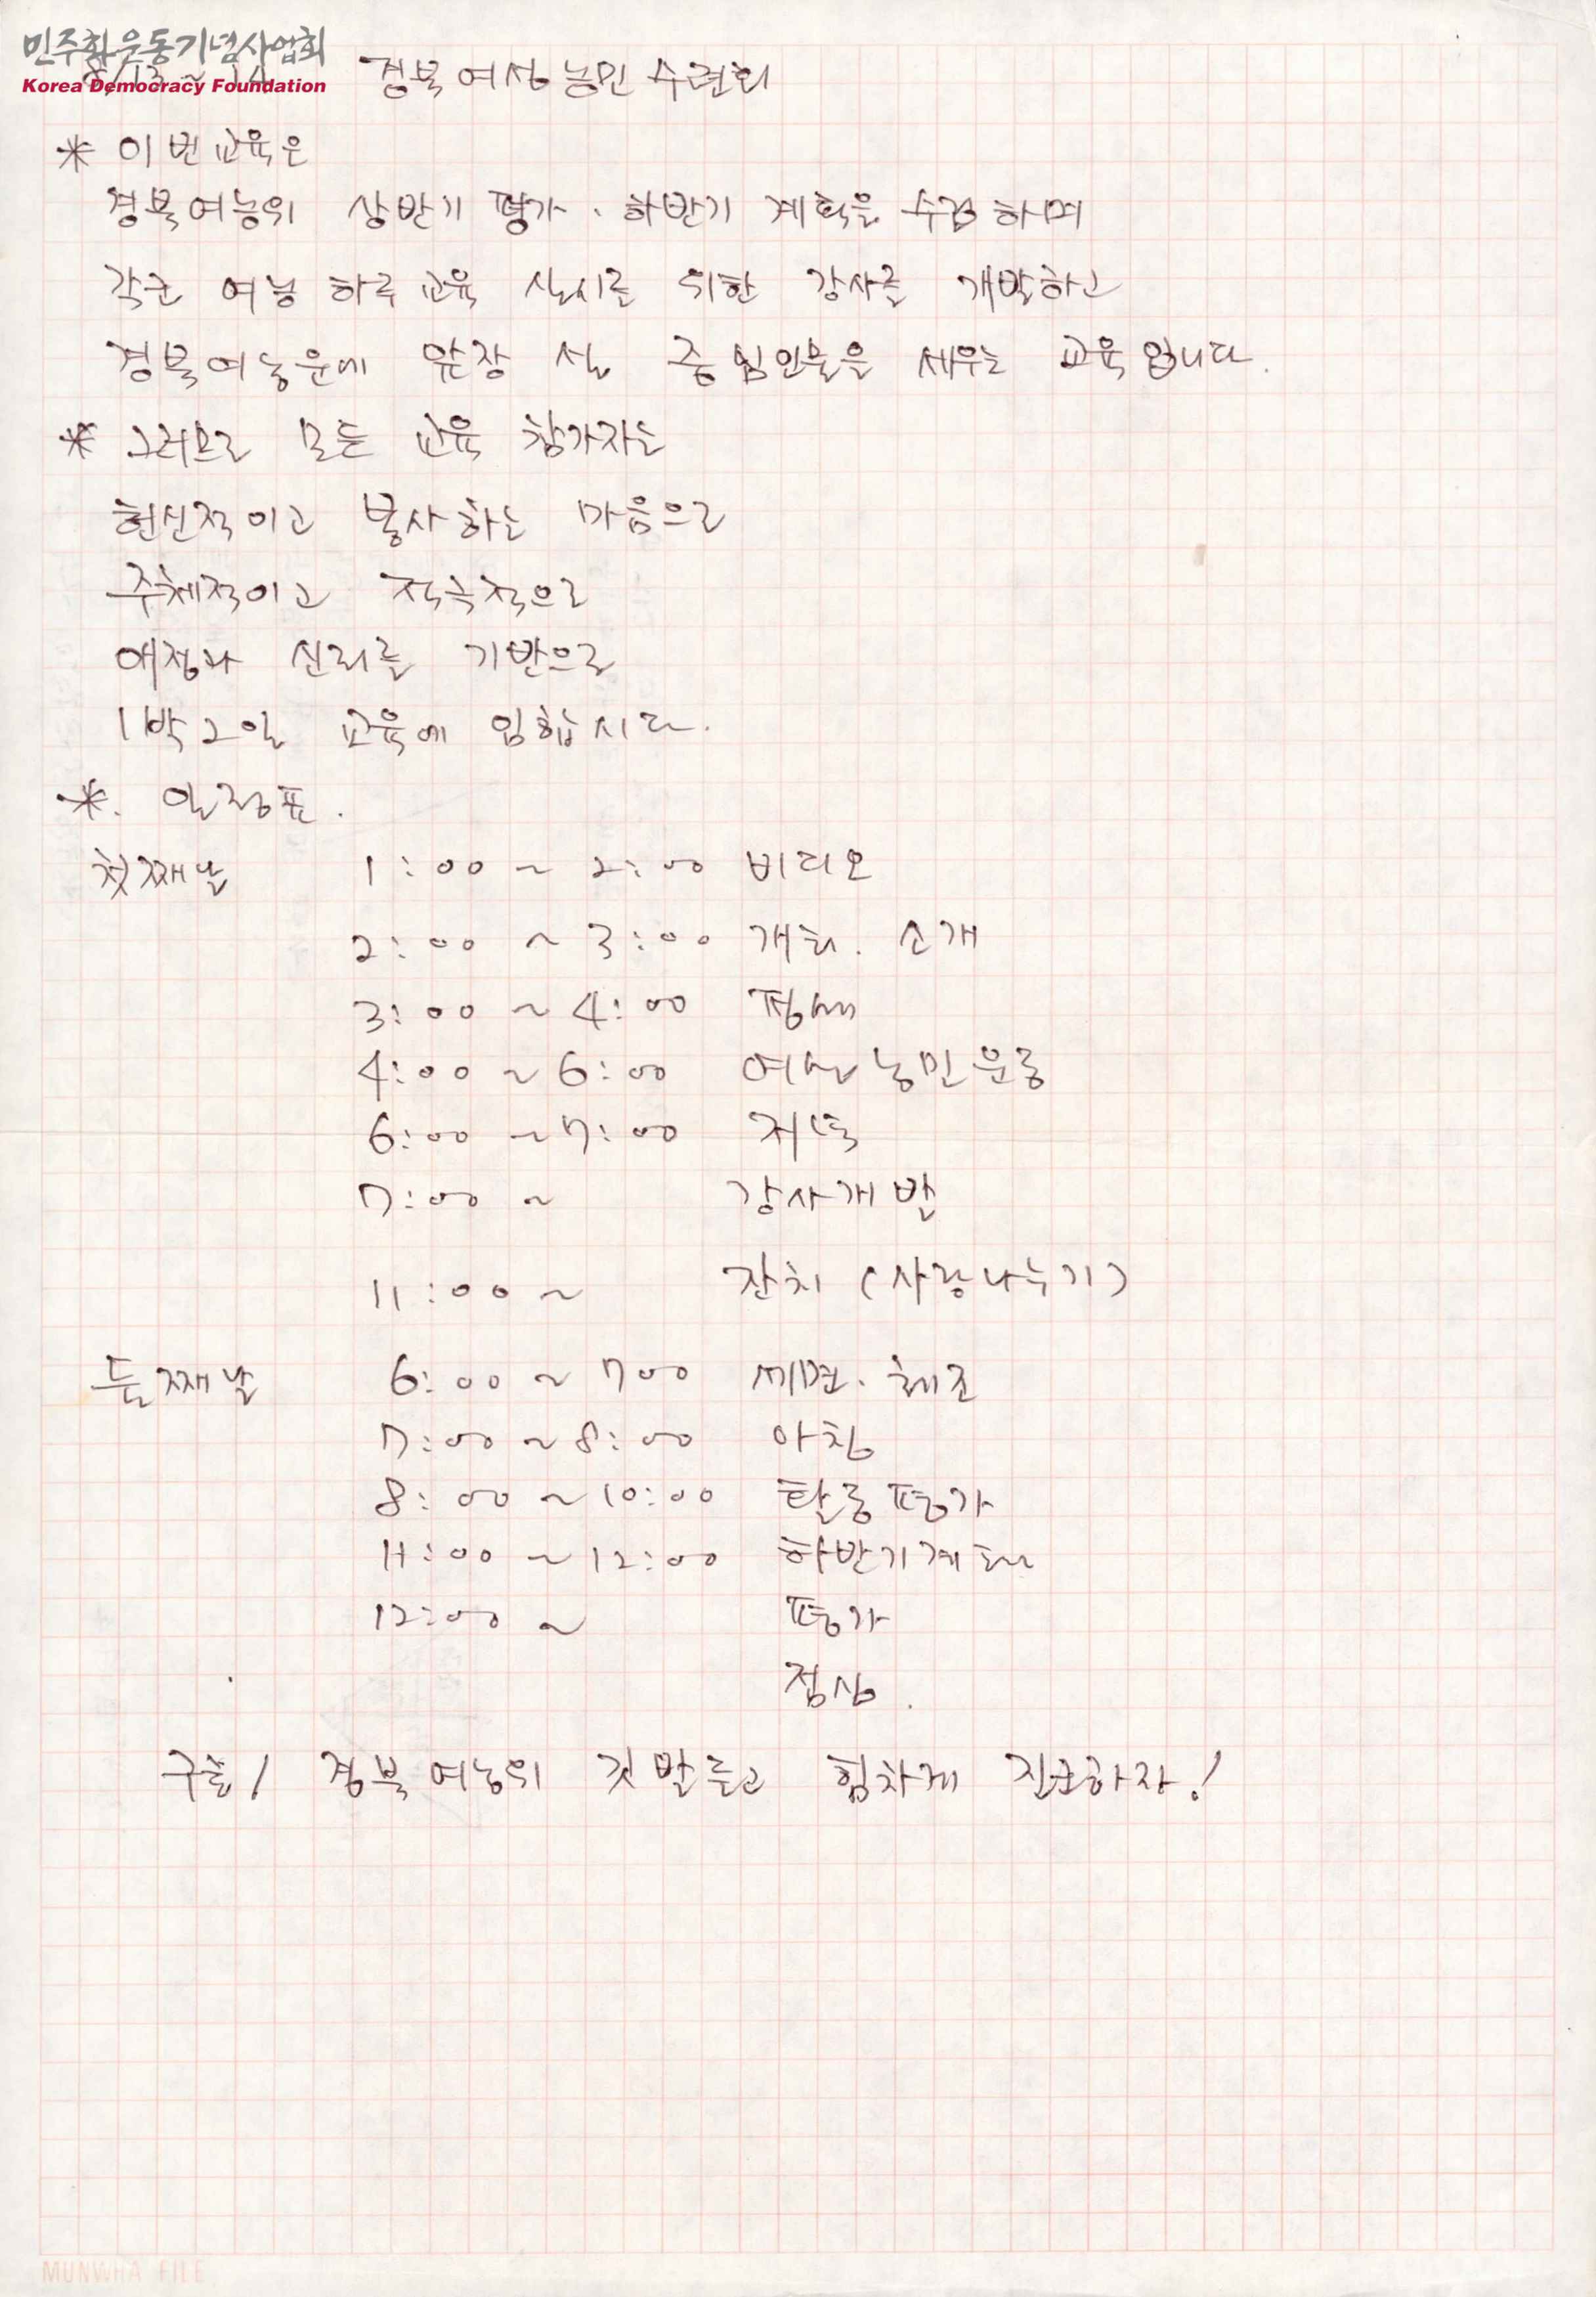 민주화운동기념사업회
Korea Democracy Foundation
8/13 ~ 14 경북여성농민 수련회
* 이번교육은
경북여농의 상반기 평가 · 하반기 계획을 수렴하며
각군 여농 하루교육 실시를 위한 강사를 개발하고
경북여농운에 앞장 설 중심인물을 세우는 교육입니다.
* 그러므로 모든 교육 참가자는
헌신적이고 봉사하는 마음으로
주체적이고 적극적으로
애정과 신뢰를 기반으로
1박2일 교육에 임합시다.
*. 일정표.
첫째날 1:00 ~ 2:00 비디오
2:00 ~ 3:00 개회. 소개
3:00 ~ 4:00 정세
4:00 ~ 6:00 여성농민운동
6:00 ~ 7:00 저녁
7:00 ~ 강사개발
11:00 ~ 잔치 (사랑나누기)
둘째날 6:00 ~ 700 세면. 체조
7:00 ~ 8:00 아침
8:00 ~ 10:00 활동평가
11:00 ~ 12:00 하반기계획
12:00 ~ 평가
점심.
구호! 경북여농의 깃발들고 힘차게 진군하자!
MUNWHA FILE